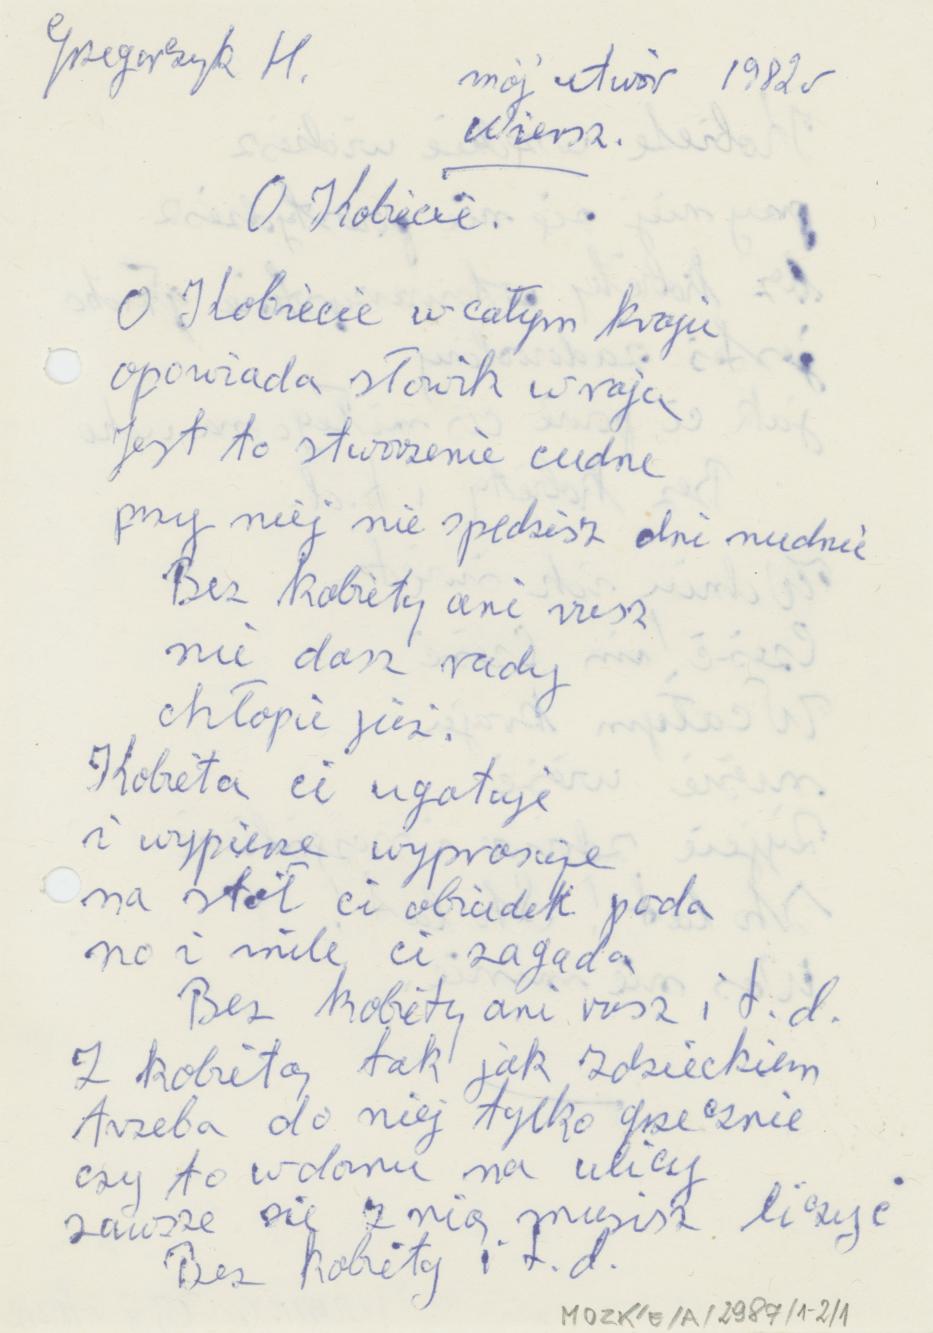 Grzegorczyk H.
mój utwór 1982r
Wiersz.
O Kobiecie.
O Kobiecie w całym kraju
opowiada słowik w raju
Jest to stworzenie cudne
przy niej nie spędzisz dni nudnie
Bez kobiety ani rusz
nie dasz rady
chłopie już.
Kobieta ci ugotuje
i wypierze wyprasuje
na stół ci obiadek poda
no i mile ci zagada
Bez kobiety ani rusz i t.d.
Z kobietą tak jak z dzieckiem
trzeba do niej tylko grzecznie
czy to w domu na ulicy
zawsze się z nią musisz liczyć
Bez kobiety i t.d.
MOZK/E/A/2987/1-2/1